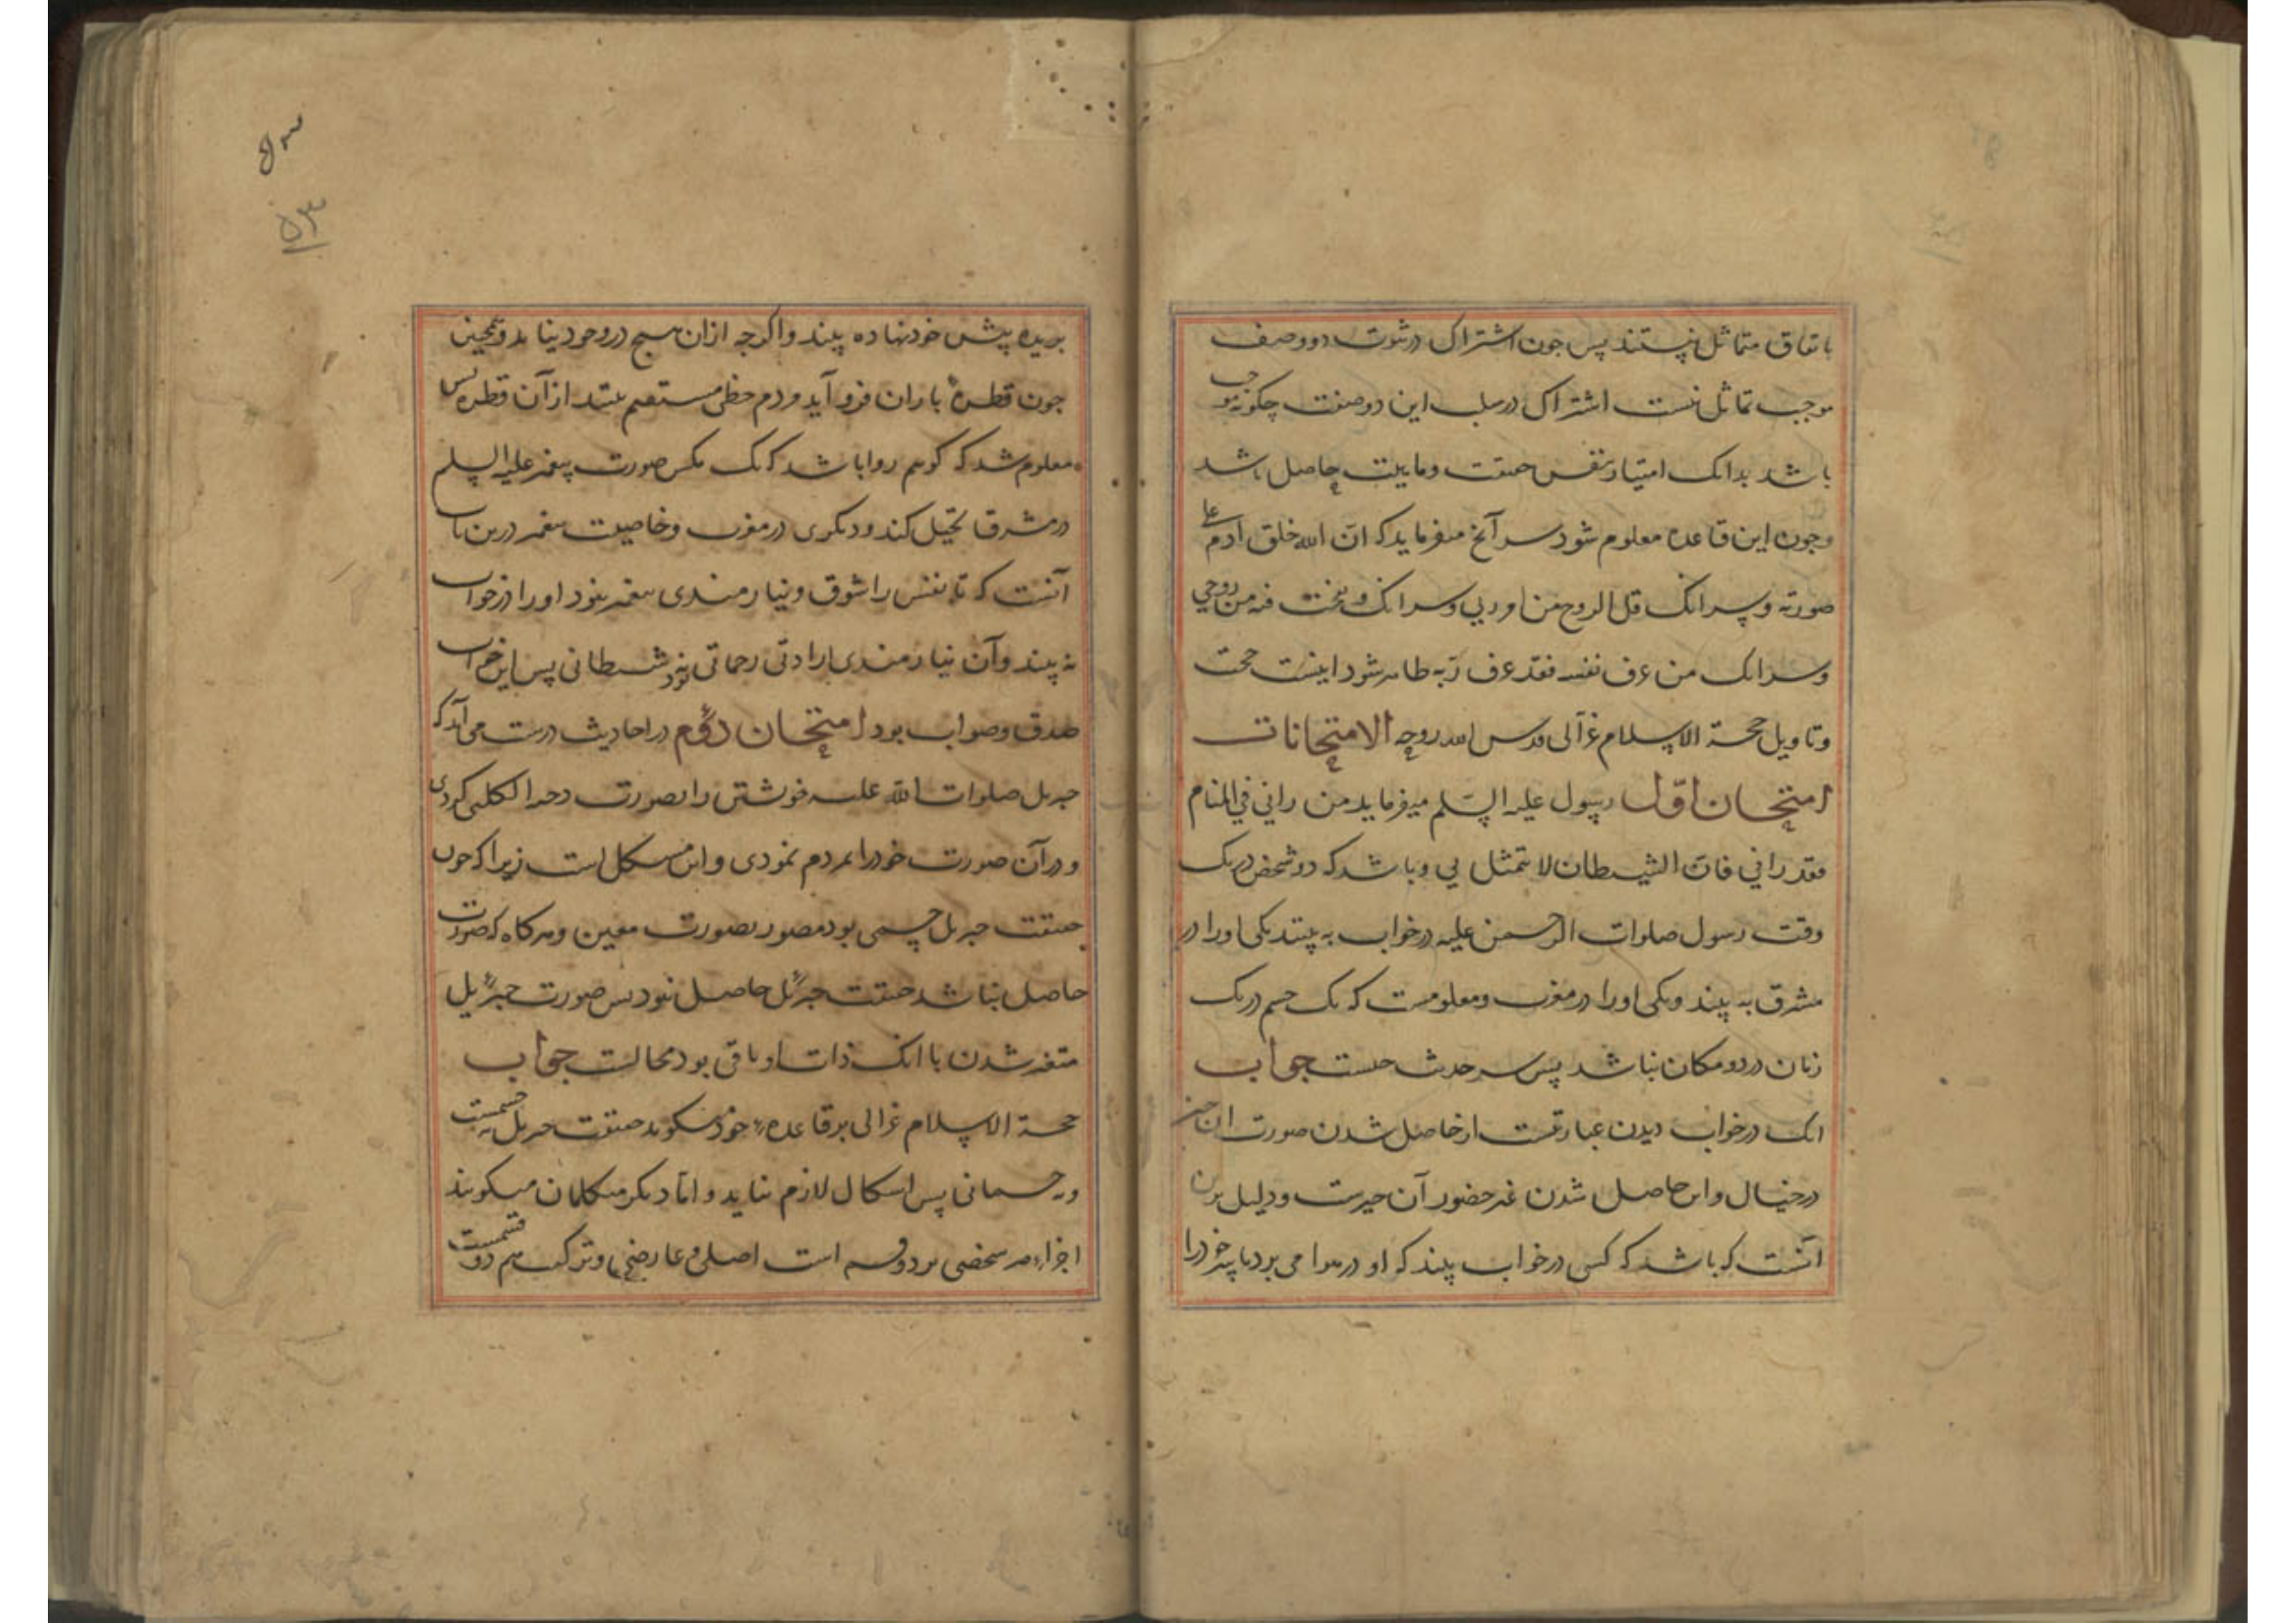 باتفاق متماثل نیستند پس جون اشتراک در ثبوت دو وصف
موجب تماثل نیست اشتراک در سلب این دو صفت چکونه موجب
باشد بدانک امتیاز بنفس حقیقت و ماهیت حاصل باشد
و جون این قاعده معلوم شود سر آنچ میفرماید که ان الله خلق آدم علی
صورته و سر انک قل الروح من امر ربی و سر انک و نفخت فیه من روحی
و سر انک من عرف نفسه فقد عرف ربّه ظاهر شود اینست حجت
و تاویل حجة الاسلام غزّالی قدس الله روحه الامتحانات
امتحان اوّل رسول علیه السّلم میفرماید من رانی فی المنام
فقد رانی فانّ الشیطان لا یتمثل بی و باشد که دو شخص در یک
وقت رسول صلوات الرحمن علیه در خواب به بینند یکی او را در
مشرق به بیند و یکی او را در مغرب و معلومست که یک جسم در یک
زمان در دو مکان نباشد پس سر حدیث چیست جواب
انک در خواب دیدن عبارتست از حاصل شدن صورت ان چیز
در خیال و این حاصل شدن غیر حضور آن چیزست و دلیل برین
آنست که باشد که کسی در خواب بیند که او در هوا می برد یا سر خود را
بریده پیش خود نهاده بیند و اکرچه از ان هیچ در وجود نیاید و همچنین
جون قطرهٔ باران فرو آید مردم خطی مستقیم بیند از آن قطره پس
معلوم شد که کوهم روا باشد که یک کس صورت پیغمبر علیه السلم
در مشرق تخیّل کند و دیکری در مغرب و خاصیت پیغمبر درین باب
آنست که تا نفس را شوق و نیازمندی پیغمبر نبود او را در خواب
نه بیند و آن نیازمندی ارادتی رحمانی بود نه شیطانی پس این خواب
صدق و صواب بود امتحان دوُم در احادیث درست می آید که
جبریل صلوات الله علیه خویشتن را بصورت دحیة الکلبی کردی
و در آن صورت خود را بمردم نمودی و این مشکل است زیرا که جون
حقیقت جبریل جسمی بود مصور بصورت معین و هرکاه که صورت
حاصل نباشد حقیقت جبرئل حاصل نبود پس صورت جبرئیل
متغیر شدن با انک ذات او باقی بود محالست جواب
حجة الاسلام غزالی بر قاعدهٔ خود میکوید حقیقت جبریل نه جسمست
و نه جسمانی پس اشکال لازم نیاید و امّا دیکر متکلمان میکویند
اجزاء هر شخصی بر دو قسم است اصلی و عارضی و ترکیب هم دو قسمست